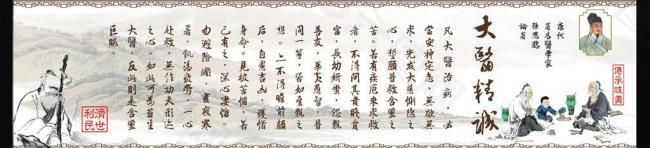 唐代
著名醫學家
孫思邈
論著
大醫精誠
凡大醫治病 必
當安神定志,無欲無
求,先發大慈惻隱之
心,誓願普救含靈之
苦。若有疾厄來求救
者,不得問其貴賤貧
富,長幼妍蚩,怨親
善友,華夷愚智,普
同一等,皆如至親之
想。亦不得瞻前顧
后,自慮吉凶,護惜
身命。見彼苦惱,若
己有之,深心凄愴
勿避險巇,晝夜寒
暑,飢渴疲勞,一心
赴救,無作功夫形迹
之心。如此可為蒼生
大醫,反此則是含靈
巨賊
傳承岐黃
濟世
利民